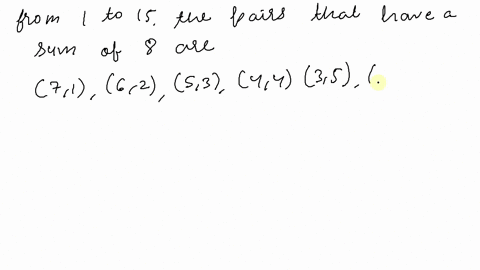 from 1 to 15, the pairs that have a
sum of 8 are
(7,1), (6,2), (5,3), (4,4) (3,5), (